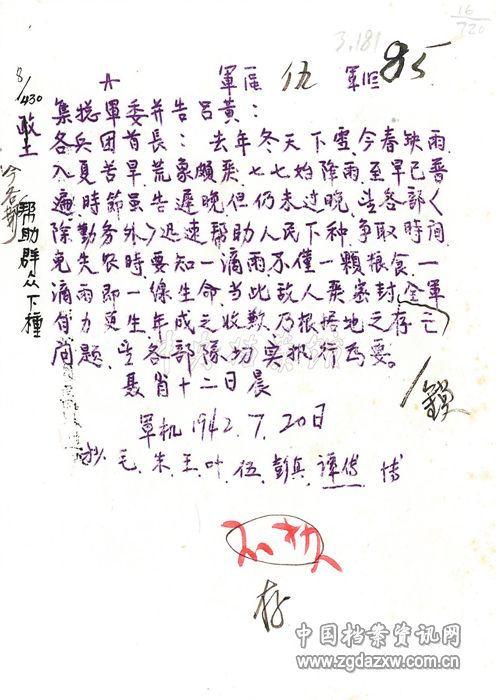 16/720
3.181
軍区 仇 軍旺 85
集总軍委并告吕黄：
各兵团首長：去年冬天下雪，今春缺雨
入夏苦旱，荒象頗乘，七七始降雨，至早已普
遍，時節虽告遲晚，但仍未过晚，望各部〈
除勤务外〉迅速帮助人民下种，争取時间，
免失农時，要知一滴雨不僅一顆粮食，一
滴雨即一線生命，当此敌人乗密封全軍
自力更生，年成之收歉，乃根据地之存亡
问题，望各部隊切实执行為要。
聂肖十二日晨
軍机1942.7.20日
抄毛、朱、王、叶、伍、彭真、譚傅、博
8/430
令各部
帮助群众下種
鎖
存
中国档案资讯网
www.zgdazxw.com.cn